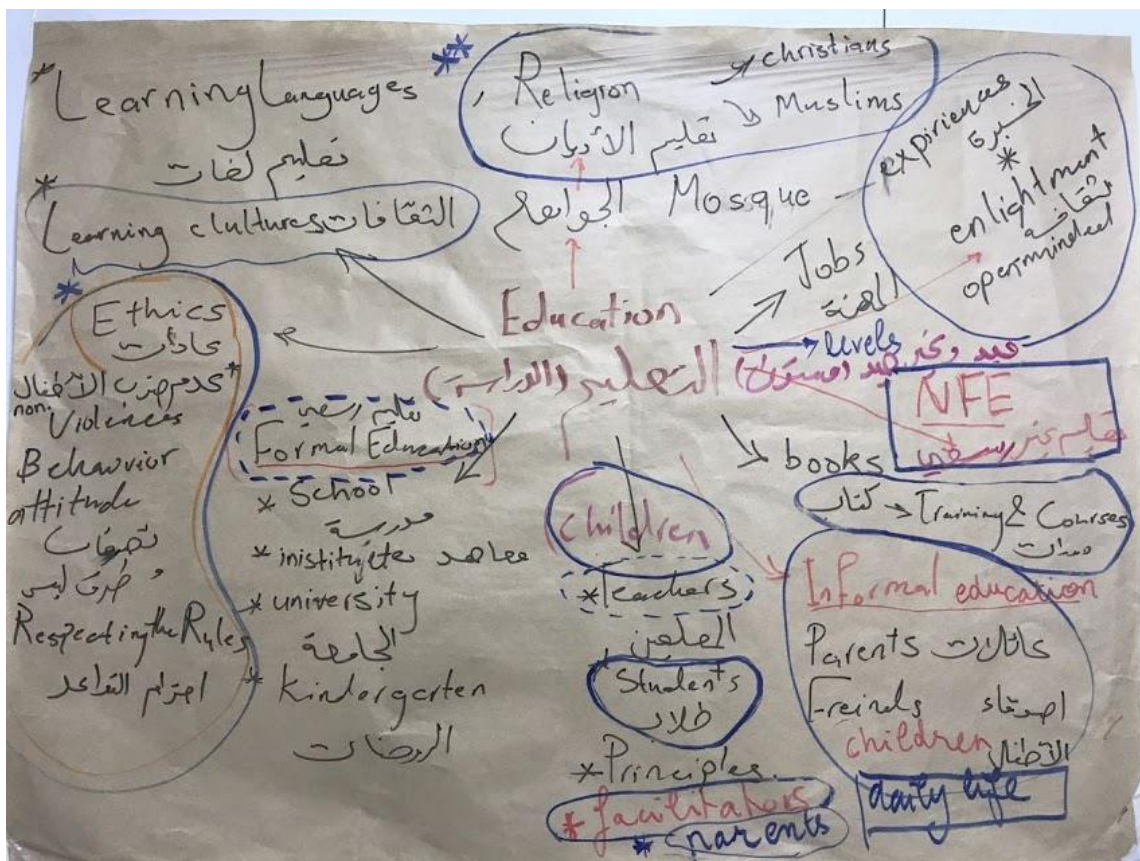 * Learning Languages
تعليم لغات
* Learning clultures الثقافات
** Religion
تعليم الأديان
christians
Muslims
الجوامع Mosque
expiriences
الخبرة
*
enlightment
ثقافة
openminded
Jobs
المهنة
levels
Education
التعليم (الدراسة)
جيد وغير جيد
NFE
تعليم غير رسمي
* Ethics
عادات
* عدم ضرب الأطفال
non
Violences
Behavvior
attitude
تصرفات
و طرق لبس
Respecting the Rules
احترام القواعد
تعليم رسمي
Formal Education
* School
مدرسة
* inistitutes معاهد
* university
الجامعة
* Kindergarten
الروضات
children
* Teachers
المعلمين
Students
طلاب
* Principles
* facilitators
* parents
books
كتاب → Training & Courses
Informal education
Parents عائلات
Freinds اصدقاء
children الأطفال
daily life